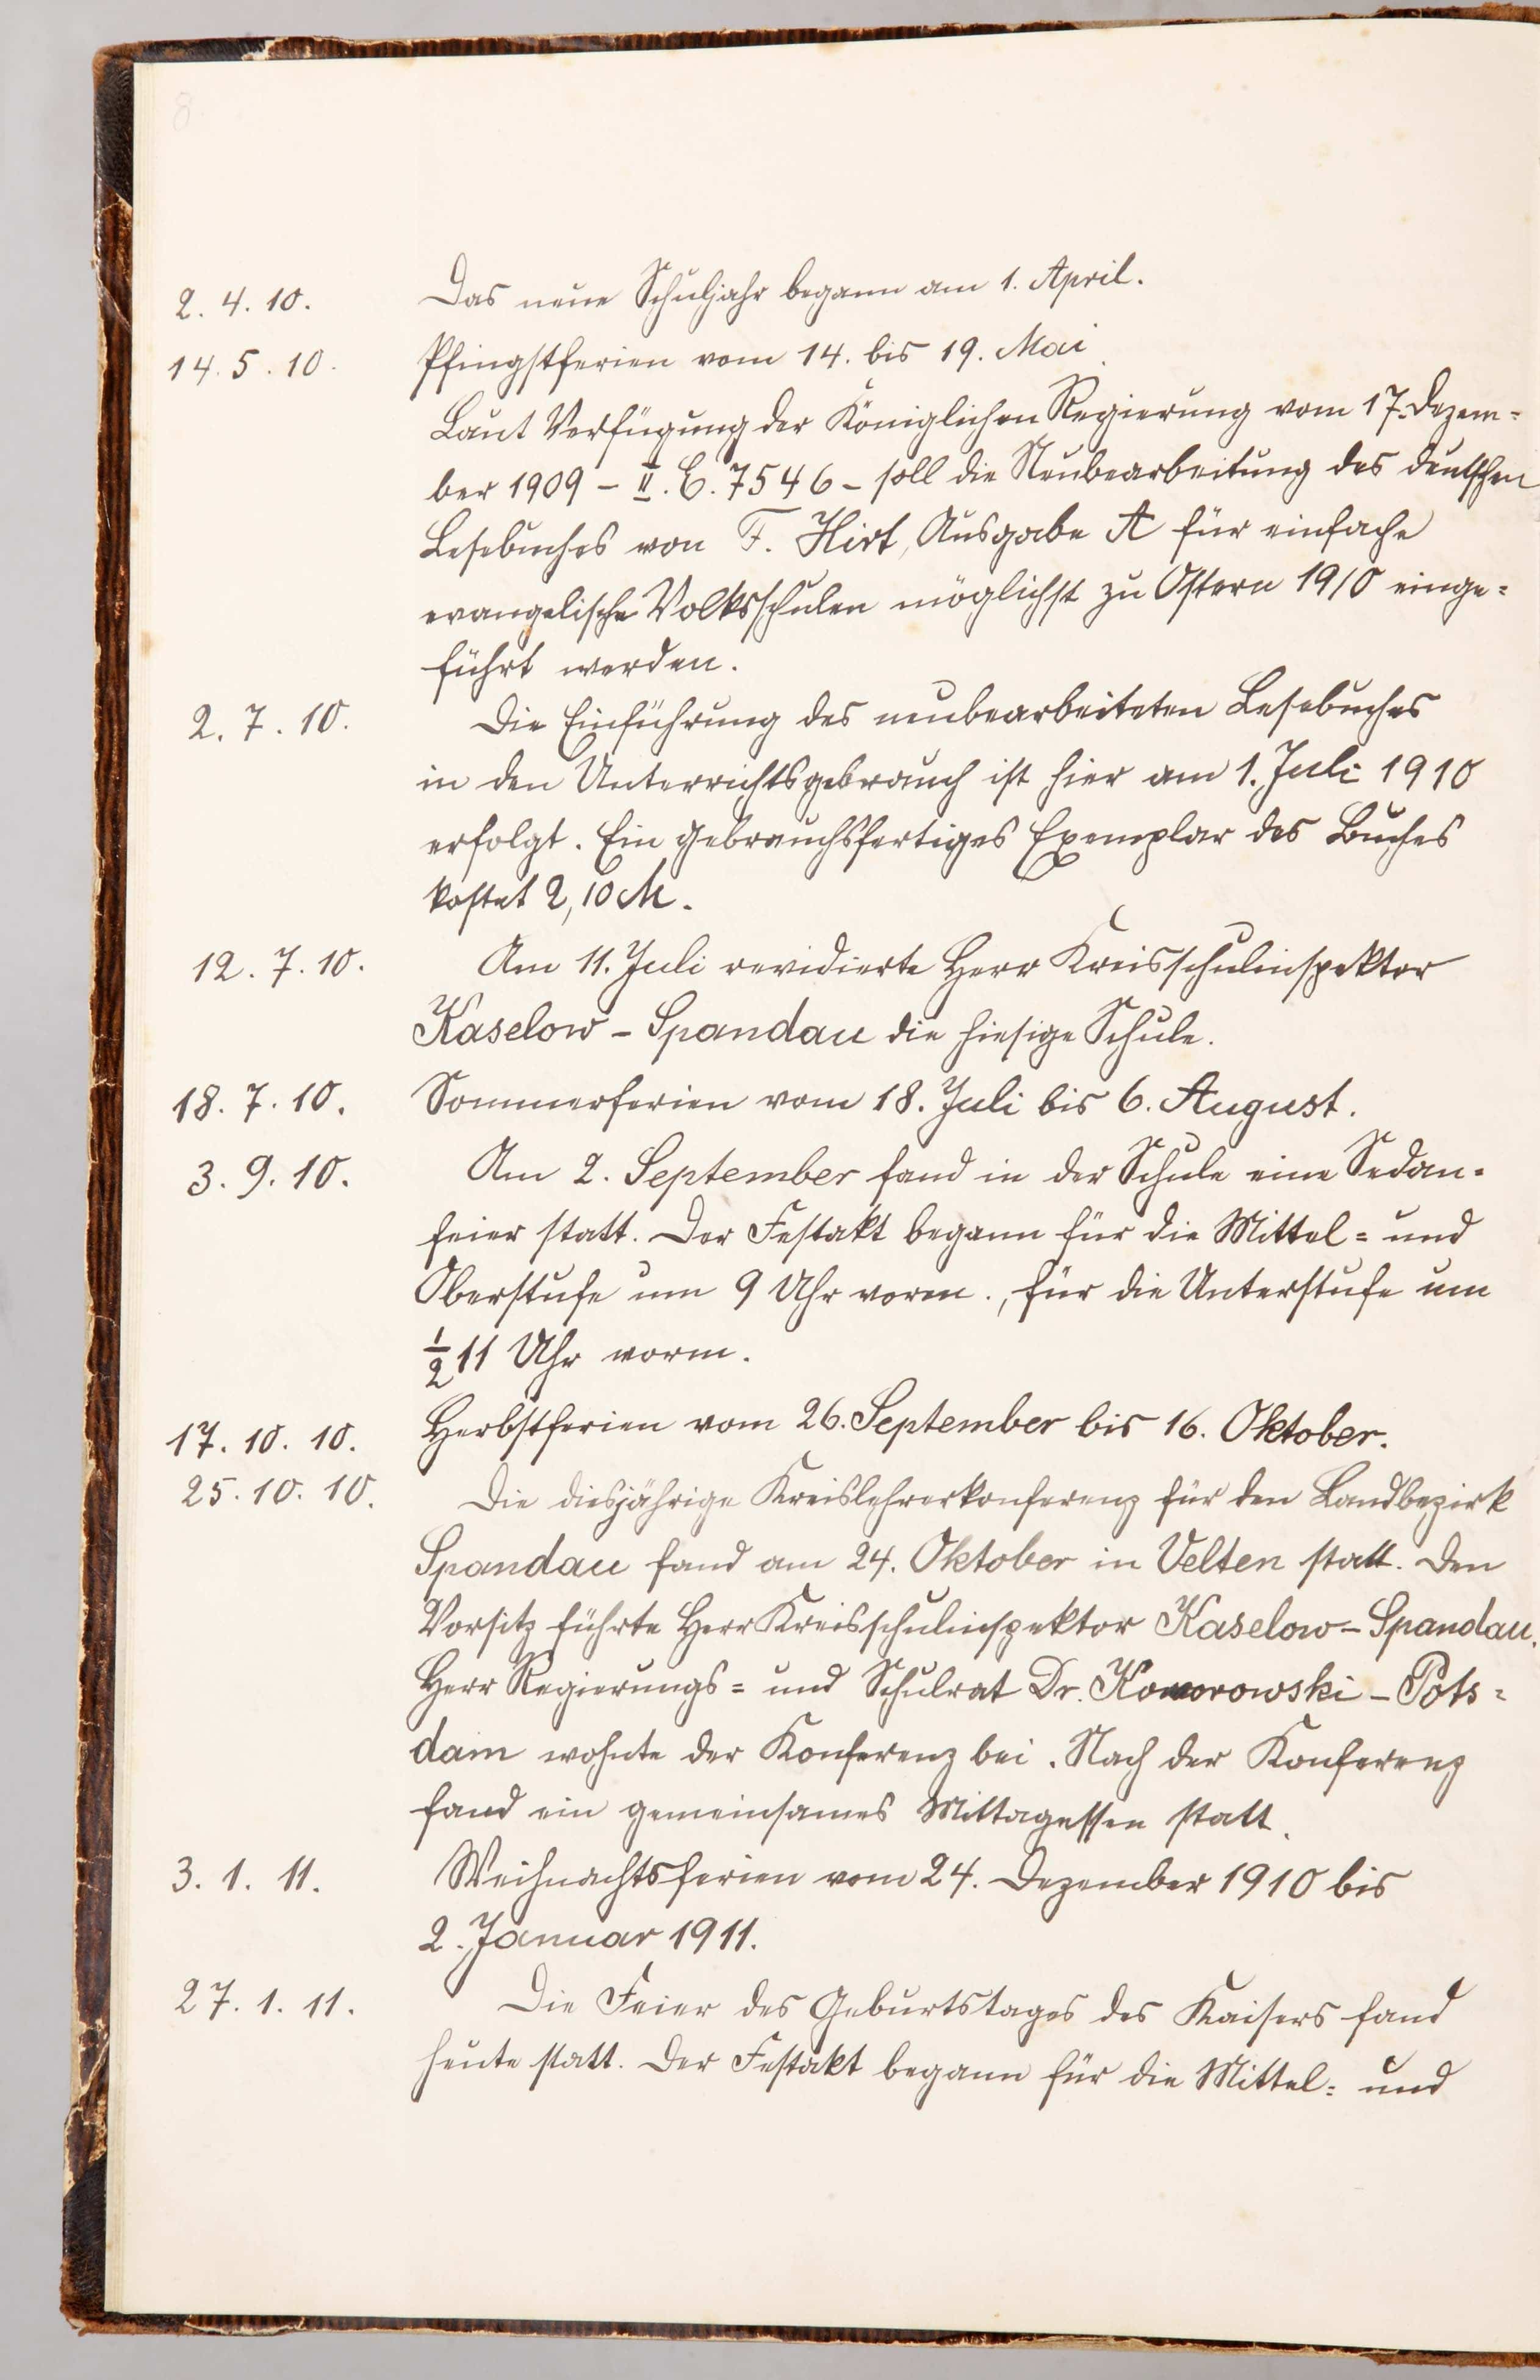 8
2. 4. 10. Das neue Schuljahr begann am 1. April.
14. 5. 10. Pfingstferien vom 14. bis 19. Mai.
Laut Verfügung der Königlichen Regierung vom 17. Dezem=
ber 1909 – II. E. 7546 – soll die Neubearbeitung des deutschen
Lesebuches von F. Hirt, Ausgabe A für einfache
evangelische Volksschulen möglichst zu Ostern 1910 einge=
führt werden.
2. 7. 10. Die Einführung des neubearbeiteten Lesebuches
in den Unterrichtsgebrauch ist hier am 1. Juli 1910
erfolgt. Ein gebrauchsfertiges Exemplar des Buches
kostet 2,10 M.
12. 7. 10. Am 11. Juli revidierte Herr Kreisschulinspektor
Kaselow – Spandau die hiesige Schule.
18. 7. 10. Sommerferien vom 18. Juli bis 6. August.
3. 9. 10. Am 2. September fand in der Schule eine Sedan=
feier statt. Der Festakt begann für die Mittel= und
Oberstufe um 9 Uhr vorm., für die Unterstufe um
½ 11 Uhr vorm.
17. 10. 10. Herbstferien vom 26. September bis 16. Oktober.
25. 10. 10. Die diesjährige Kreislehrerkonferenz für den Landbezirk
Spandau fand am 24. Oktober in Velten statt. Den
Vorsitz führte Herr Kreisschulinspektor Kaselow – Spandau.
Herr Regierungs= und Schulrat Dr. Komorowski – Pots=
dam wohnte der Konferenz bei. Nach der Konferenz
fand ein gemeinsames Mittagessen statt.
3. 1. 11. Weihnachtsferien vom 24. Dezember 1910 bis
2. Januar 1911.
27. 1. 11. Die Feier des Geburtstages des Kaisers fand
heute statt. Der Festakt begann für die Mittel= und